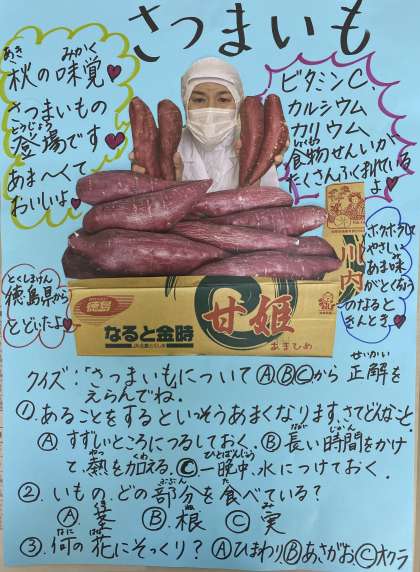 さつまいも
秋の味覚♥
あき みかく
さつまいもの
登場です♥
とうじょう
あま〜くて
おいしいよ♥
ビタミンC、
カルシウム
カリウム、
食物せんいが
たくさんふくまれている
よ♥
徳島県から
とくしまけん
とどいたよ♥
ホクホクして
やさしい
あま味
がとくちょう
のなると
きんとき♥
徳島
なると金時
甘姫
あまひめ
川内
クイズ:「さつまいも」についてⒶⒷⒸから正解を
せいかい
えらんでね。
①.あることをするといっそうあまくなります。さてどんなこと。
Ⓐすずしいところにつるしておく。Ⓑ長い時間をかけ
なが じかん
て、熱を加える。Ⓒ一晩中、水につけておく。
ねつ くわ ひとばんじゅう
②.いもは、どの部分を食べている?
ぶぶん た
Ⓐ.葉 Ⓑ.根 Ⓒ実
は ね み
③.何の花にそっくり?Ⓐひまわり Ⓑあさがお Ⓒオクラ
なに はな